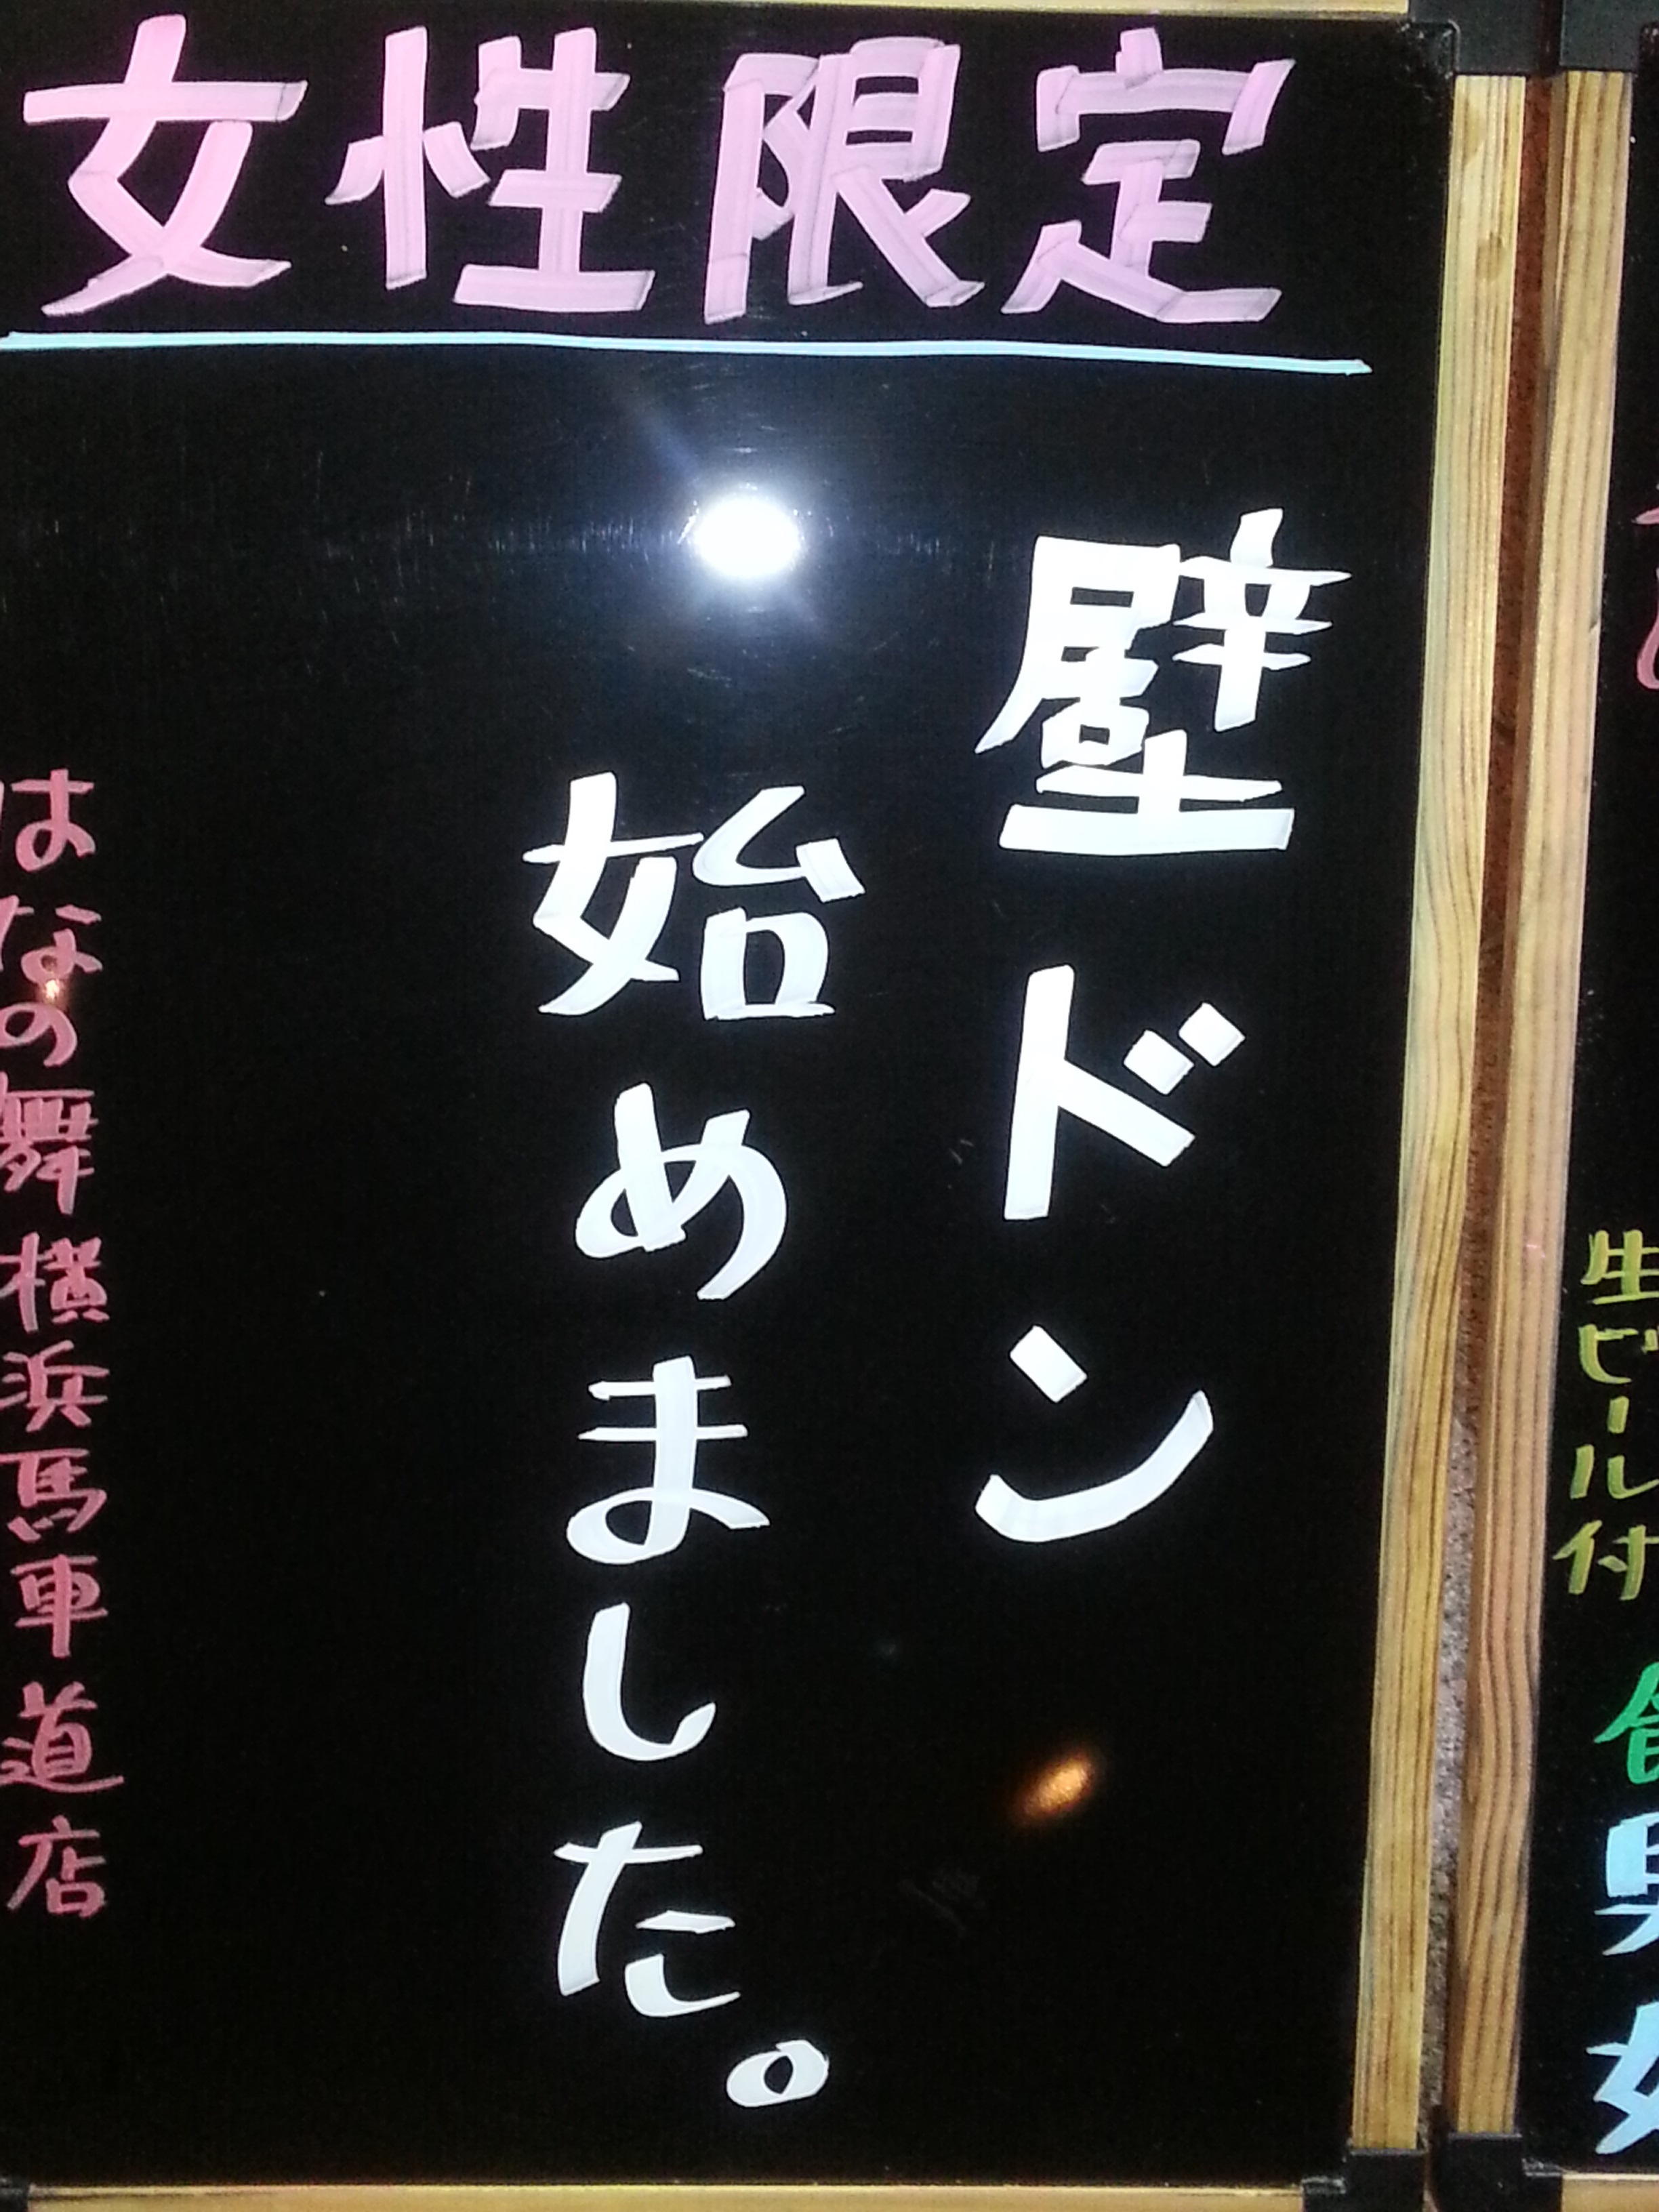 女性限定
壁ドン
始めました。
はなの舞 横浜馬車道店
生ビール付